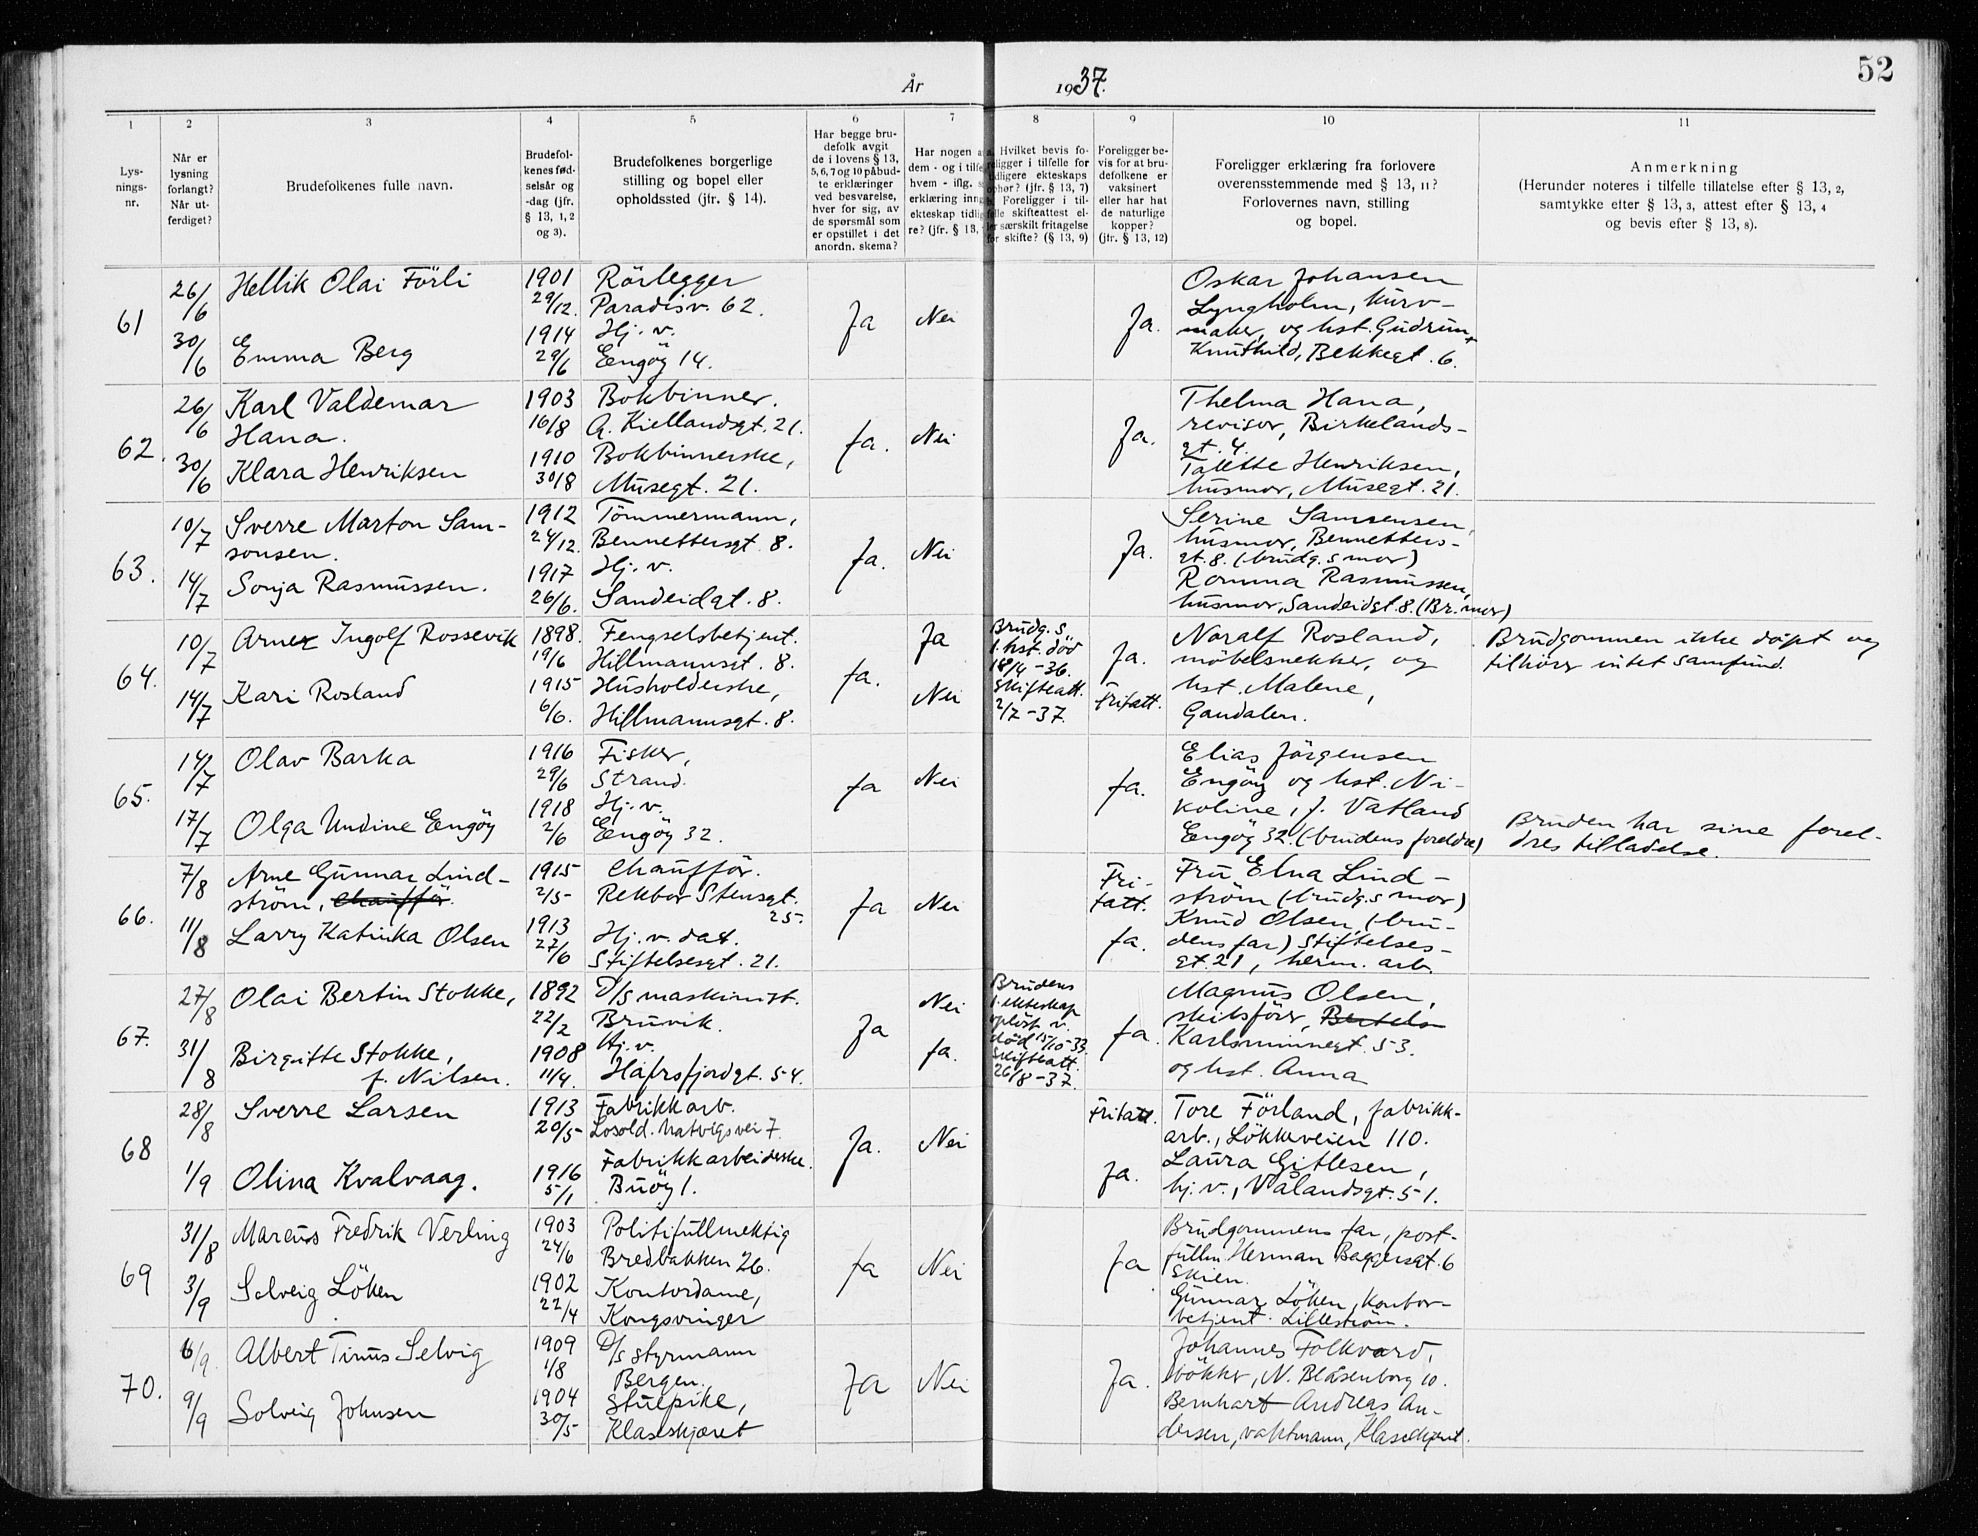 52
År 1937.
1 2 3 4 5 6 7 8 9 10 11
Lys-
nings-
nr.
Når er
lysning
forlangt?
Når ut-
ferdiget?
Brudefolkenes fulle navn.
Brudefol-
kenes fød-
selsår og
-dag (jfr.
§ 13, 1, 2
og 3).
Brudefolkenes borgerlige
stilling og bopel eller
opholdssted (jfr. § 14).
Har begge bru-
defolk avgit
de i lovens § 13,
5, 6, 7 og 10 påbud-
te erklæringer
ved besvarelse,
hver for sig, av
de spørsmål som
er opstillet i det
anordn. skema?
Har nogen a
dem - og i tilfe
hvem - iflg. s
erklæring inng
ekteskap tidlig
re? (jfr. § 13,
a. Hvilket bevis fo-
religger i tilfelle for
tidligere ekteskaps
ophør? (jfr. § 13, 7)
b. Foreligger i til-
felle skifteattest el-
ler særskilt fritagelse
for skifte? (§ 13, 9)
Foreligger be-
vis for at bru-
defolkene er
vaksinert
eller har hat
de naturlige
kopper?
(jfr. § 13, 12)
Foreligger erklæring fra forlovere
overensstemmende med § 13, 11?
Forlovernes navn, stilling
og bopel.
Anmerkning
(Herunder noteres i tilfelle tillatelse efter § 13, 2,
samtykke efter § 13, 3, attest efter § 13, 4
og bevis efter § 13, 8).
61
26/6
30/6
Hellik Olai Förli
Emma Berg
1901
29/12.
1914
29/6
Rörlegger
Paradisv. 62.
Hj. v.
Engöy 14.
Ja
Nei
Ja.
Oskar Johansen
Lyngholm, kurv-
maker, og hst. Gudrun
Knuthild, Bekkegt. 6.
62.
26/6
30/6
Karl Valdemar
Hana.
Klara Henriksen
1903
16/8
1910
30/8
Bokbinner.
A. Kiellandsgt. 21.
Bokbinnerske,
Musegt. 21.
Ja.
Nei
Ja.
Thelma Hana,
revisor, Birkelands-
gt. 4.
Talette Henriksen,
husmor, Musegt. 21.
63.
10/7
14/7
Sverre Marton Sam-
sonsen.
Sonja Rasmussen.
1912
24/12.
1917
26/6.
Tömmermann,
Bennettersgt. 8.
Hj. v.
Sandeidgt. 8.
Ja.
Nei
Ja.
Serine Samsonsen,
husmor, Bennetters-
gt. 8. (brudg.s mor)
Romma Rasmussen,
husmor, Sandeidgt. 8. (Br. mor)
64.
10/7
14/7
Arne Ingolf Rossevik
Kari Rosland
1898.
19/6
1915
6/6.
Fengselsbetjent.
Hillmannsgt. 8.
Husholderske,
Hillmannsgt. 8.
Ja.
Ja
Nei
Brudg.s
1. hst. död
18/4-36.
Skifteatt.
2/7-37.
Ja.
Fritatt.
Noralf Rosland,
möbelsnekker, og
hst. Malene,
Gandalen.
Brudgommen ikke döpt og
tilhörer intet samfund.
65.
14/7
17/7
Olav Barka
Olga Undine Engöy
1916
29/6
1918
2/6
Fisker,
Strand.
Hj. v.
Engöy 32.
Ja
Nei
Ja.
Elias Jörgensen
Engöy og hst. Ni-
koline, f. Vatland
Engöy 32. (brudens foreldre)
Bruden har sine forel-
dres tilladelse.
66.
7/8
11/8
Arne Gunnar Lind-
ström, Chaufför.
Larry Katinka Olsen
1915
2/5-
1913
27/6
Chaufför.
Rektor Stensgt.
25.
Hj. v. dat.
Stiftelsesgt. 21.
Ja
Nei
Fri-
tatt.
Ja.
Fru Elna Lind-
ström (brudg.s mor)
Knud Olsen, (bru-
dens far) Stiftelses-
gt. 21, herm. arb.
67.
27/8
31/8
Olai Bertin Stokke,
Birgitte Stokke,
f. Nilsen.
1892
22/2
1908
11/4.
D/S maskinist.
Bruvik.
Hj. v.
Hafrsfjordgt. 54.
Ja
Nei
Ja.
Brudens
1. ekteskap
oplöst v.
död 15/10-33.
Skifteatt.
26/8-37.
Ja.
Magnus Olsen,
skibsförer, Bertels
Karlsminnegt. 53.
og hst. Anna
68
28/8
1/9
Sverre Larsen
Olina Kvalvaag.
1913
20/5-
1916
5/1
Fabrikkarb.
Losold. Natvigs vei 7.
Fabrikkarbeiderske.
Buöy 1.
Ja.
Nei
Fritatt.
Ja.
Tore Förland, fabrikk-
arb., Lökkeveien 110.
Laura Gitlesen,
hj. v., Vålandsgt. 51.
69
31/8
3/9
Marcus Fredrik Verling
Solveig Löken
1903
24/6
1902
22/4
Politifullmektig
Bredbakken 26.
Kontordame,
Kongsvinger
Ja
Nei
Ja
Brudgommens far, post-
fullm. Herman Baggersgt. 6
Skien.
Gunnar Löken, kontor-
betjent. Lilleström.
70.
6/9.
9/9
Albert Tinus Selvig
Solveig Johnsen
1909
1/8
1904
30/5
D/S styrmann
Bergen.
Stuepike,
Klasaskjæret
Ja
Nei
Ja.
Johannes Folkvord,
bökker, N. Blåsenborg 10.
Bernhart Andreas An-
dersen, vaktmann, Klasaskjæret.